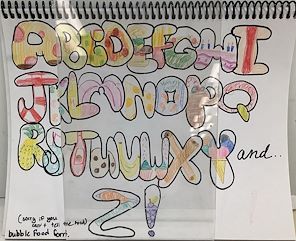 ABCDEFGHI
JKLMNOPQ
RSTUVWXY and..
Z!
(sorry if you
can't tell the food)
bubble food font.